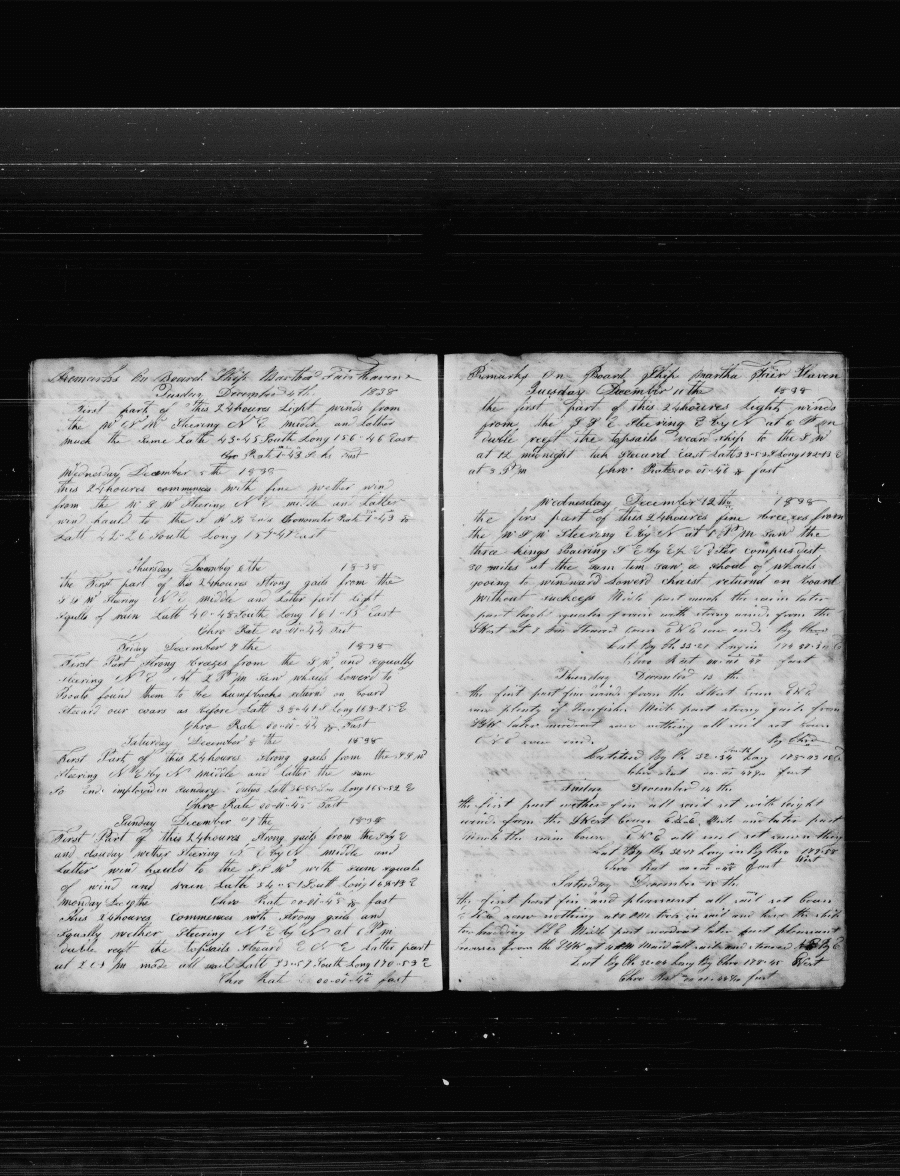 Remarks On Board Ship Martha Fair Haven
Tuesday December 4th 1838
First part of this 24houres Light winds from
the W N W Steering N E middle and Latter
much the same Latt 43-45 South Long 156-46 East
Chro Rate 1-43 Fast
Wednesday December 5th 1838
this 24houres commences with fine wether wind
from the W S W Steering N E middle and Latter
wind hauld to the Chronometer Rate 1-43
Latt 42-26 South Long 157-47 East
Thursday December 6 the 1838
the First part of this 24houres Strong gails from the
S W Steering N E middle and Latter part Light
Squalls of rain Latt 40-48 South Long 161-15 East
Chro Rate 00-01-44 Fast
Friday December 7 the 1838
First Part Strong breazes from the S W and squally
Steering N E At 2 P m Saw whales Lowerd to
Boats found them to be humpbacks returnd on board
Steard our cours as before Latt 38-41 S Long 163-25 E
Chro Rate 00-01-44 Fast
Saturday December 8 the 1838
First Part of this 24houres Strong gails from the S S W
Steering N E by N middle and Latter the sam
So Ends employd in Sundary duties Long 165-52 E
Chro Rate 00-01-45 Fast
Sunday December 9 the 1838
First Part of this 24houres Strong gails from the
and wether Steering N E by N middle and
Latter wind hauld to the S W with sum squals
of wind and rain Latt 34-51 South Long 168-13 E
Monday Dec 10 the Chro Rate 00-01-45 fast
this 24houres Commences with Strong gails and
Squally wether Steering N E by N at 6 P m
duble reeft the topsails Steard E N E Latter part
at 2 P m made all sail Latt 33-57 South Long 170-53 E
Chro Rate 00-01-45 fast
Remarks On Board Ship Martha Fair Haven
Tuesday December 11 the 1838
the first part of this 24houres Light winds
from the S S E Steering E by N at 6 P m
duble reeft the topsails weard ship to the S W
at 12 midnight Steard East Latt 33-51 Long
at 3 P m Chro Rate 00-01-46 fast
Wednesday December 12 the 1838
the firs part of this 24houres fine breezes from
the W S W Steering E by N at 6 P m Saw the
three kings Baring S E by E per compas dist
30 miles at the sam tim saw a Shoal of whails
going to windward Lowerd chaist returnd on board
without suckces Midle part much the sam later
part high squales of rain with strong winds from the
SWest at 7 Steard Cours E N E so ends By Chro
Lat By Ob 33-27 Long in 174 37-30
Chro Rat 00-01-47 fast
Thursday December 13 the
the first part fin winds from the SWest Cours ENE
saw plenty of Midle part strong gails from
SW later modrat saw nothing all sail set Cours
ENE so ends By Chro
Latitud By Ob 32-34 South Long
Chro Rat 00-01-47 fast
Friday December 14 the
the first part wether fin all sail set with light
winds from the SWest Cours Midle and later part
much the sam Cours ENE all sail set sawn nothing
Lat By Ob 32-17 Long in By Chro 177-58
Chro Rat 00-01-48 fast West
Saturday December 15 the
the first part fin and pleasent all sail set Cours
E N E saw nothing at took in sail and hove the ship
too heading SSE Midle part modrat later part pleasant
breezes from the SW at 4 Maid all sails and steared
Lat By Ob 32-04 Long By Chro 178-45 West
Chro Rat 00-01-48 fast